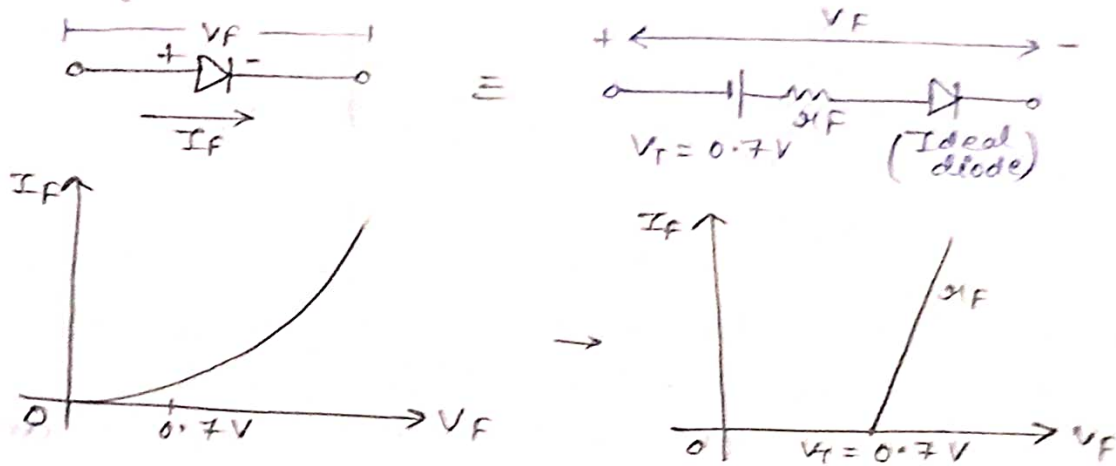 VF
+ -
IF
≡
VF
+ -
rF
VT = 0.7 V
(Ideal
diode)
IF
0
0.7 V
VF
→
IF
rF
0
VT = 0.7 V
VF